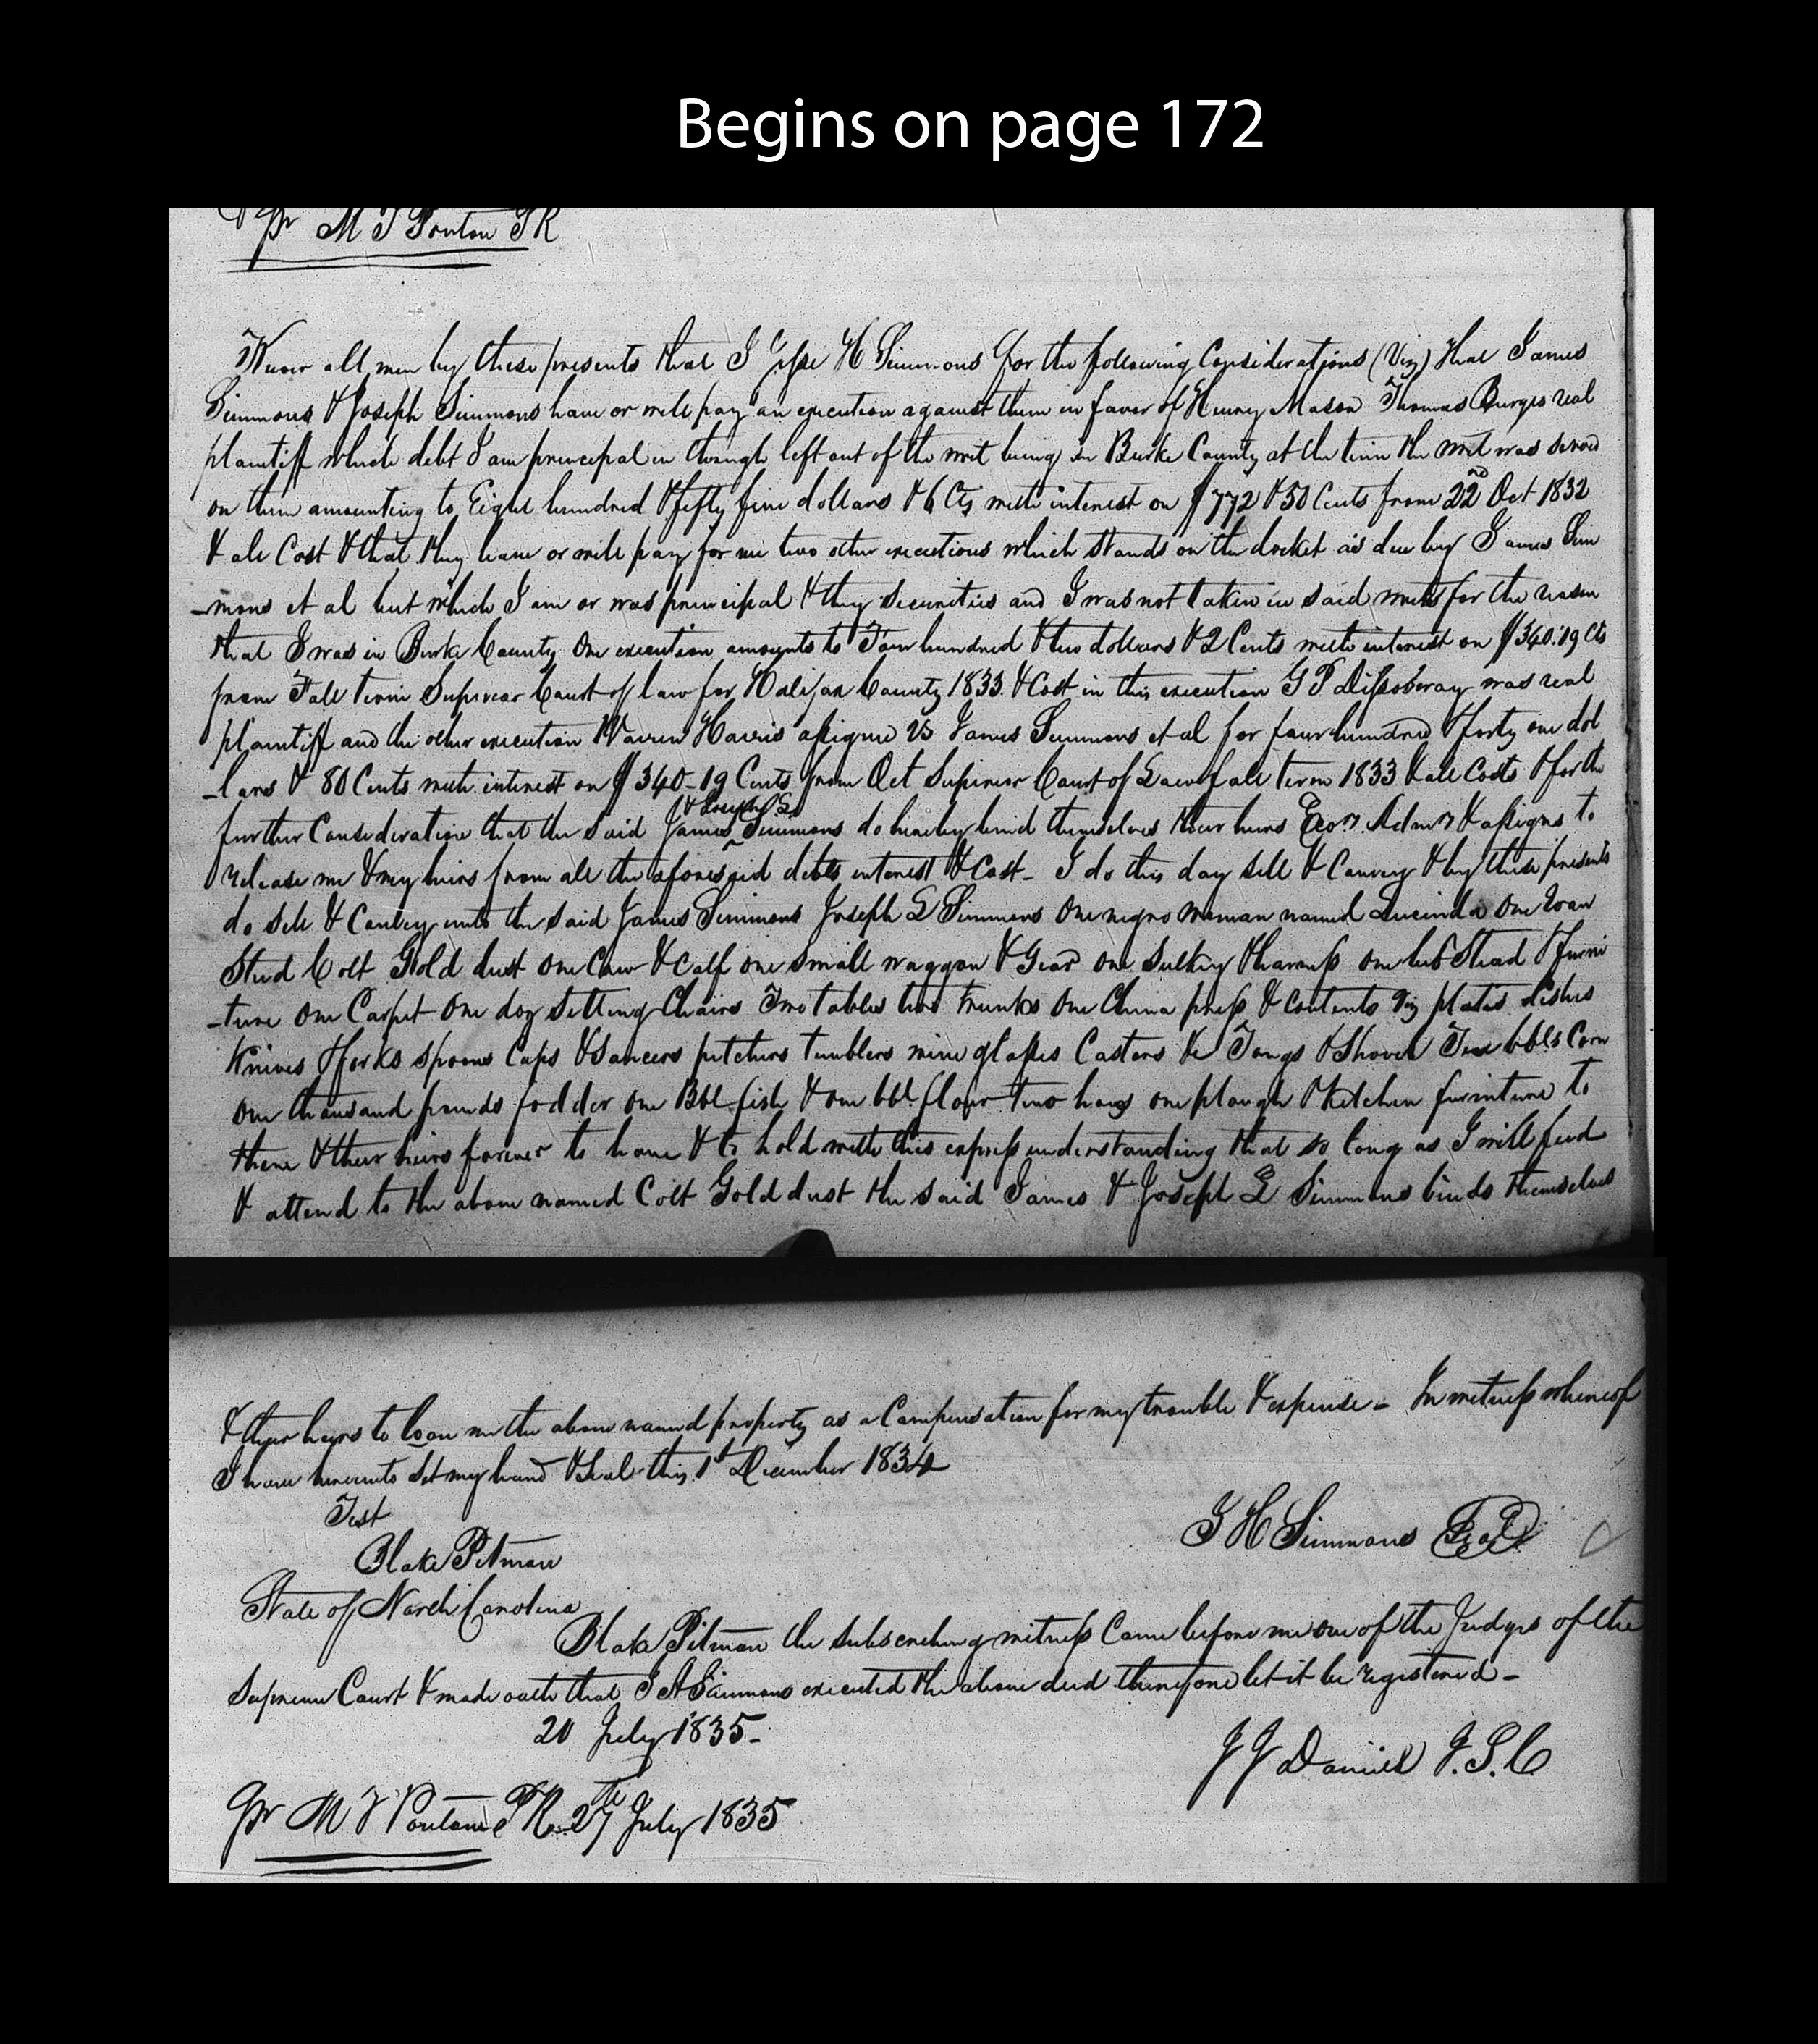 Begins on page 172
Pr M T Ponton PR
Know all men by these presents that I Jesse H Simmons for the following Considerations (Viz) that James
Simmons & Joseph Simmons have or will pay an execution against them in favor of Henry Mason Thomas Burges real
plaintiff which debt I am principal in though left out of the writ being in Burke County at the time the writ was served
on them amounting to Eight hundred & fifty five dollars & 6 Cts with interest on $772 & 50 Cents from 22nd Oct 1832
& all Cost & that they have or will pay for me two other executions which stands on the docket as due by James Sim
-mons et al but which I am or was principal & they securities and I was not taken in said writs for the reason
that I was in Burke County One execution amounts to Four hundred & two dollars & 2 Cents with interest on $340.19 Cts
from Fall term Superior Court of law for Halifax County 1833. & Cost in this execution G P was real
plaintiff and the other execution Warren Harris assignee vs James Simmons et al for four hundred & forty one dol
-lars & 80 Cents with interest on $340-19 Cents from Oct Superior Court of Law fall term 1833 & all Costs & for the
further Consideration that the said James & Joseph S Simmons do hereby bind themselves their heirs Exors Admrs & assigns to
release me & my heirs from all the aforesaid debts interest & Cost - I do this day sell & Convey & by these presents
do sell & Convey unto the said James Simmons Joseph L Simmons One negro woman named Lucinda One roan
Stud Colt Gold dust one Cow & Calf one small waggon & Gear one Sulkey & harness one bed Stead & furni
-ture One Carpet One doz Setting Chairs Two tables two trunks One China press & contents viz plates dishes
Knives & forks spoons Cups & Saucers pitchers tumblers wine glasses Castors &c Tongs & Shovel Ten bbls Corn
one thousand pounds fodder one Bbl fish & one bbl flour two hogs one plough & Kitchen furniture to
them & their heirs forever to have & to hold with this express understanding that so long as I will feed
& attend to the above named Colt Gold dust the said James & Joseph L Simmons binds themselves
& their heirs to loan me the above named property as a Compensation for my trouble & expense - In witness whereof
I have hereunto set my hand & Seal this 1st December 1834
Test
Blake Pitman
J H Simmons Seal
State of North Carolina
Blake Pitman the subscribing witness Came before me one of the Judges of the
Supreme Court & made oath that J H Simmons executed the above deed therefore let it be registered -
20 July 1835-
J J Daniel J.S.C
Pr M T Ponton PR 27th July 1835